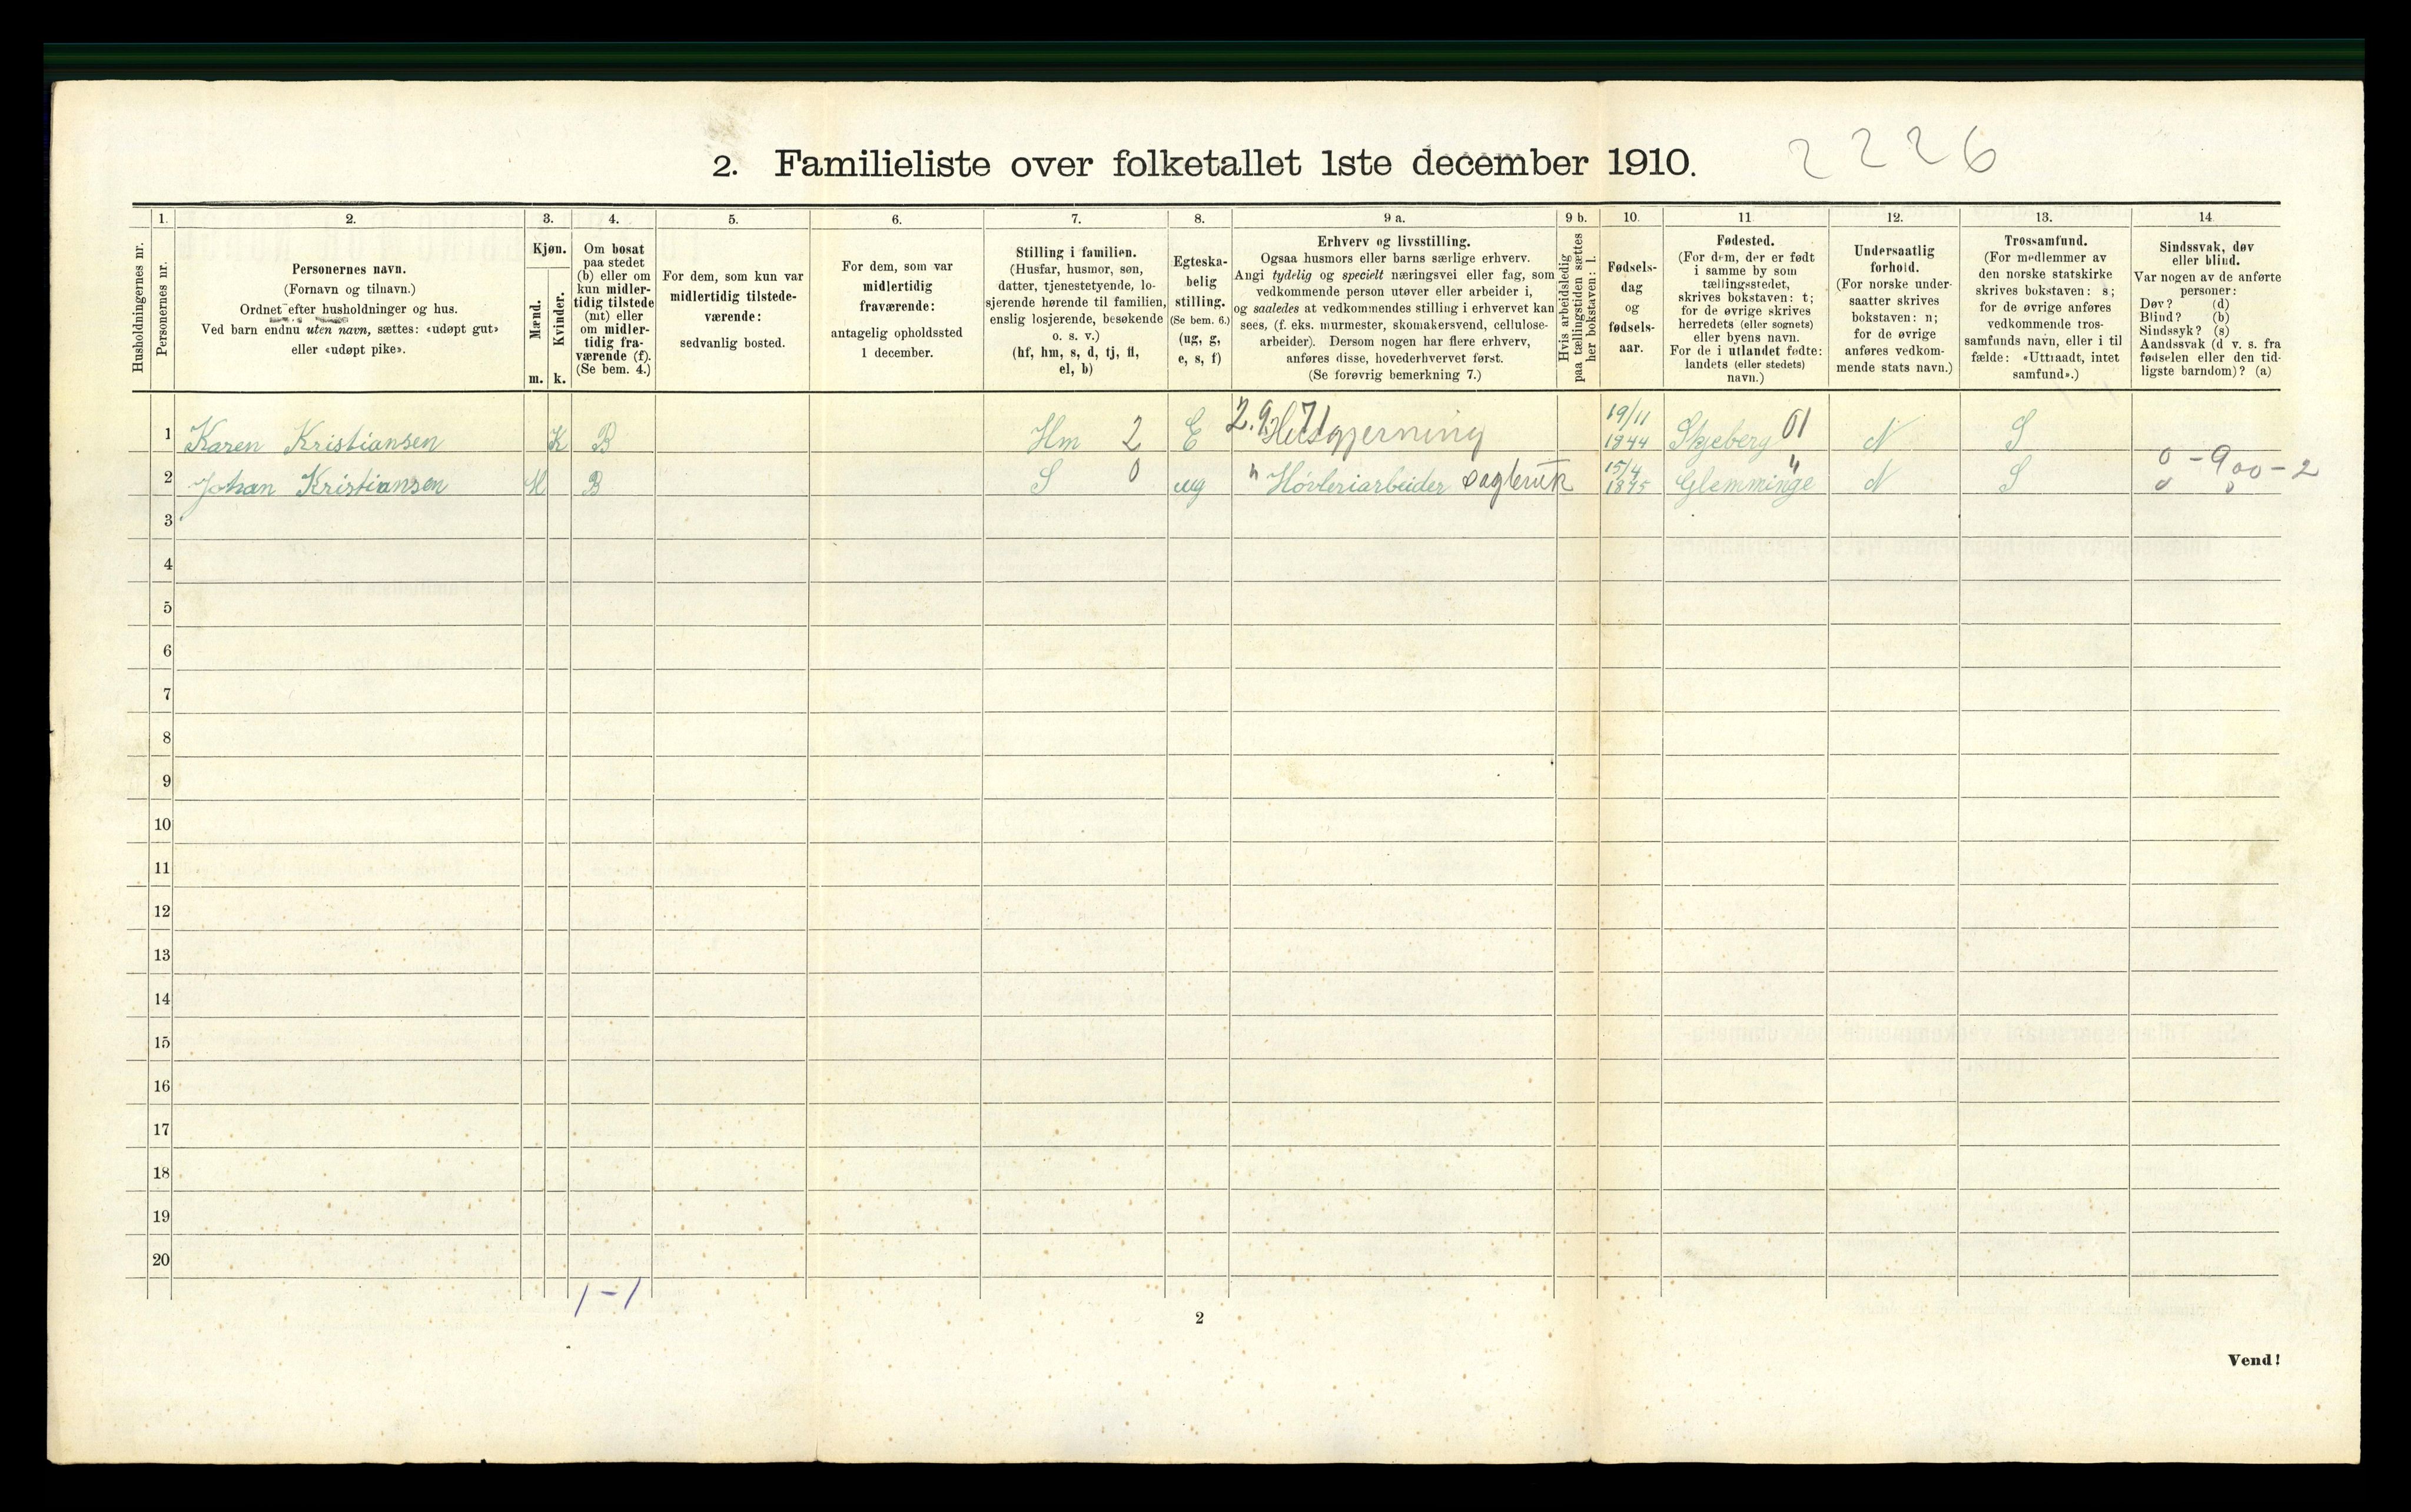 2. Familieliste over folketallet 1ste december 1910.
2226
1. 2. 3. 4. 5. 6. 7. 8. 9 a. 9 b. 10. 11. 12. 13. 14.
Husholdningernes nr.
Personernes nr.
Personernes navn.
(Fornavn og tilnavn.)
Ordnet efter husholdninger og hus.
Ved barn endnu uten navn, sættes: «udøpt gut»
eller «udøpt pike».
Kjøn.
Mænd.
Kvinder.
m. k.
Om bosat
paa stedet
(b) eller om
kun midler-
tidig tilstede
(mt) eller
om midler-
tidig fra-
værende (f).
(Se bem. 4.)
For dem, som kun var
midlertidig tilstede-
værende:
sedvanlig bosted.
For dem, som var
midlertidig
fraværende:
antagelig opholdssted
1 december.
Stilling i familien.
(Husfar, husmor, søn,
datter, tjenestetyende, lo-
sjerende hørende til familien,
enslig losjerende, besøkende
o. s. v.)
(hf, hm, s, d, tj, fl,
el, b)
Egteska-
belig
stilling.
(Se bem. 6.)
(ug, g,
e, s, f)
Erhverv og livsstilling.
Ogsaa husmors eller barns særlige erhverv.
Angi tydelig og specielt næringsvei eller fag, som
vedkommende person utøver eller arbeider i,
og saaledes at vedkommendes stilling i erhvervet kan
sees, (f. eks. murmester, skomakersvend, cellulose-
arbeider). Dersom nogen har flere erhverv,
anføres disse, hovederhvervet først.
(Se forøvrig bemerkning 7.)
Hvis arbeidsledig
paa tællingstiden sættes
her bokstaven: l.
Fødsels-
dag
og
fødsels-
aar.
Fødested.
(For dem, der er født
i samme by som
tællingsstedet,
skrives bokstaven: t;
for de øvrige skrives
herredets (eller sognets)
eller byens navn.
For de i utlandet fødte:
landets (eller stedets)
navn.)
Undersaatlig
forhold.
(For norske under-
saatter skrives
bokstaven: n;
for de øvrige
anføres vedkom-
mende stats navn.)
Trossamfund.
(For medlemmer av
den norske statskirke
skrives bokstaven: s;
for de øvrige anføres
vedkommende tros-
samfunds navn, eller i til
fælde: «Uttraadt, intet
samfund».)
Sindssvak, døv
eller blind.
Var nogen av de anførte
personer:
Døv? (d)
Blind? (b)
Sindssyk? (s)
Aandssvak (d v. s. fra
fødselen eller den tid-
ligste barndom)? (a)
1 Karen Kristiansen K B Hm 2 E 2.9.71 Husgjerning 19/11 1844 Skjeberg 01 N S
2 Johan Kristiansen M B S 0 ug " Høvleriarbeider Sagbruk 15/4 1875 Glemminge " N S 0 - 900 - 2
3
4
5
6
7
8
9
10
11
12
13
14
15
16
17
18
19
20
1-1
2
Vend!